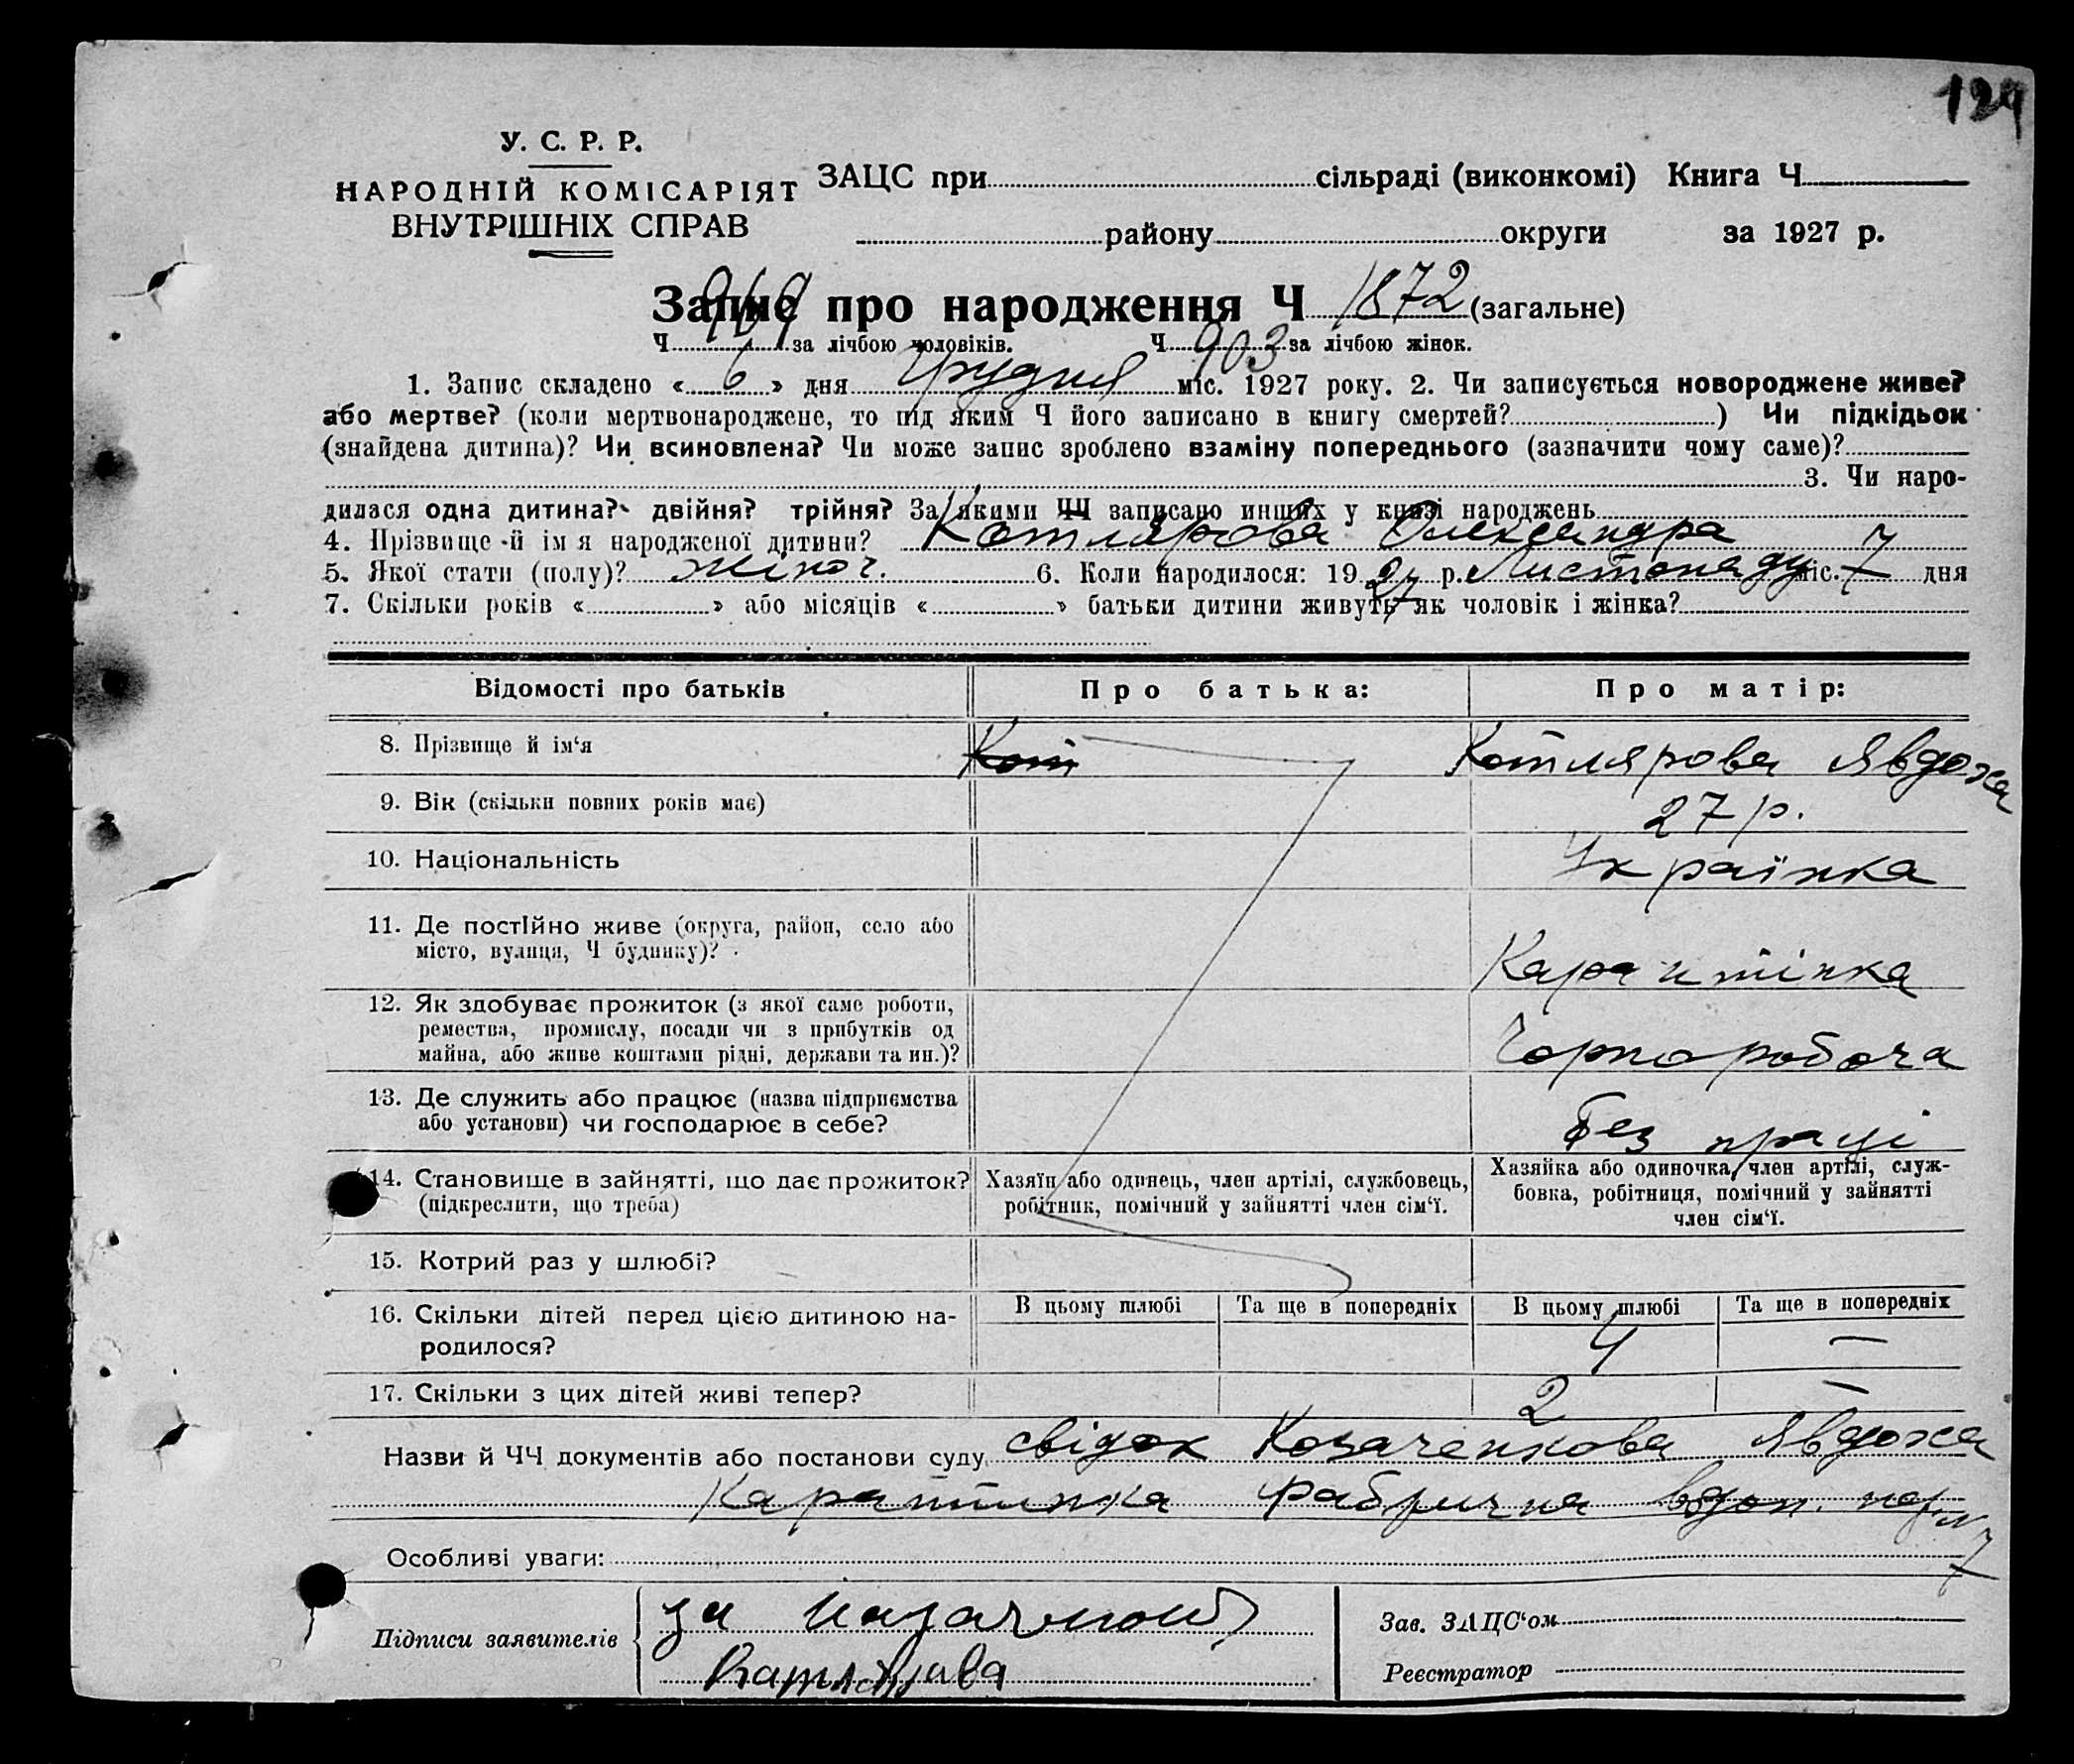 129
У. С. Р. Р.
НАРОДНІЙ КОМІСАРІЯТ
ВНУТРІШНІХ СПРАВ
ЗАЦС при сільраді (виконкомі) Книга Ч
району округи за 1927 р.
Запис про народження Ч 1872 (загальне)
Ч 969 за лічбою чоловіків. Ч 903 за лічбою жінок.
1. Запис складено « 6 » дня Грудня міс. 1927 року. 2. Чи записується новороджене живе?
або мертве? (коли мертвонароджене, то під яким Ч його записано в книгу смертей? ) Чи підкідьок
(знайдена дитина)? Чи всиновлена? Чи може запис зроблено взаміну попереднього (зазначити чому саме)?
3. Чи наро-
дилася одна дитина? двійня? трійня? За якими ЧЧ записано инших у книзі народжень
4. Прізвище й ім'я народженої дитини? Котлярова Олександра
5. Якої стати (полу)? жіноч. 6. Коли народилося: 1927 р. Листопаду міс. 7 дня
7. Скільки років « » або місяців « » батьки дитини живуть як чоловік і жінка?
Відомості про батьків Про батька: Про матір:
8. Прізвище й ім'я Кот Котлярова Явдоха
9. Вік (скільки повних років має) 27 р.
10. Національність Українка
11. Де постійно живе (округа, район, село або
місто, вулиця, Ч будинку)?
12. Як здобуває прожиток (з якої саме роботи,
ремества, промислу, посади чи з прибутків од
майна, або живе коштами рідні, держави та ин.)? Чорноробоча
13. Де служить або працює (назва підприємства
або установи) чи господарює в себе? Без праці
14. Становище в зайнятті, що дає прожиток?
(підкреслити, що треба)
Хазяїн або одинець, член артілі, службовець,
робітник, помічний у зайнятті член сім'ї.
Хазяйка або одиночка, член артілі, служ-
бовка, робітниця, помічний у зайнятті
член сім'ї.
15. Котрий раз у шлюбі?
16. Скільки дітей перед цією дитиною на-
родилося?
В цьому шлюбі Та ще в попередніх В цьому шлюбі Та ще в попередніх
4 —
17. Скільки з цих дітей живі тепер? 2 —
Назви й ЧЧ документів або постанови суду свідок Козаченкова Явдоха
Карантинка фабрична
Особливі уваги:
Підписи заявителів
Зав. ЗАЦС'ом
Реєстратор